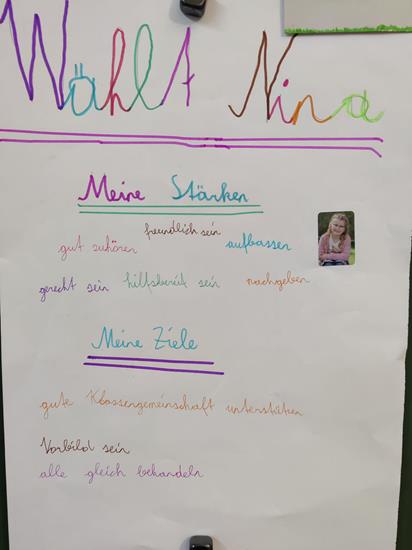 Wählt Nina
Meine Stärken
freundlich sein
gut zuhören aufbassen
gerecht sein hilfsbereit sein nachgeben
Meine Ziele
gute Klassengemeinschaft unterstüten
Vorbild sein
alle gleich behandeln